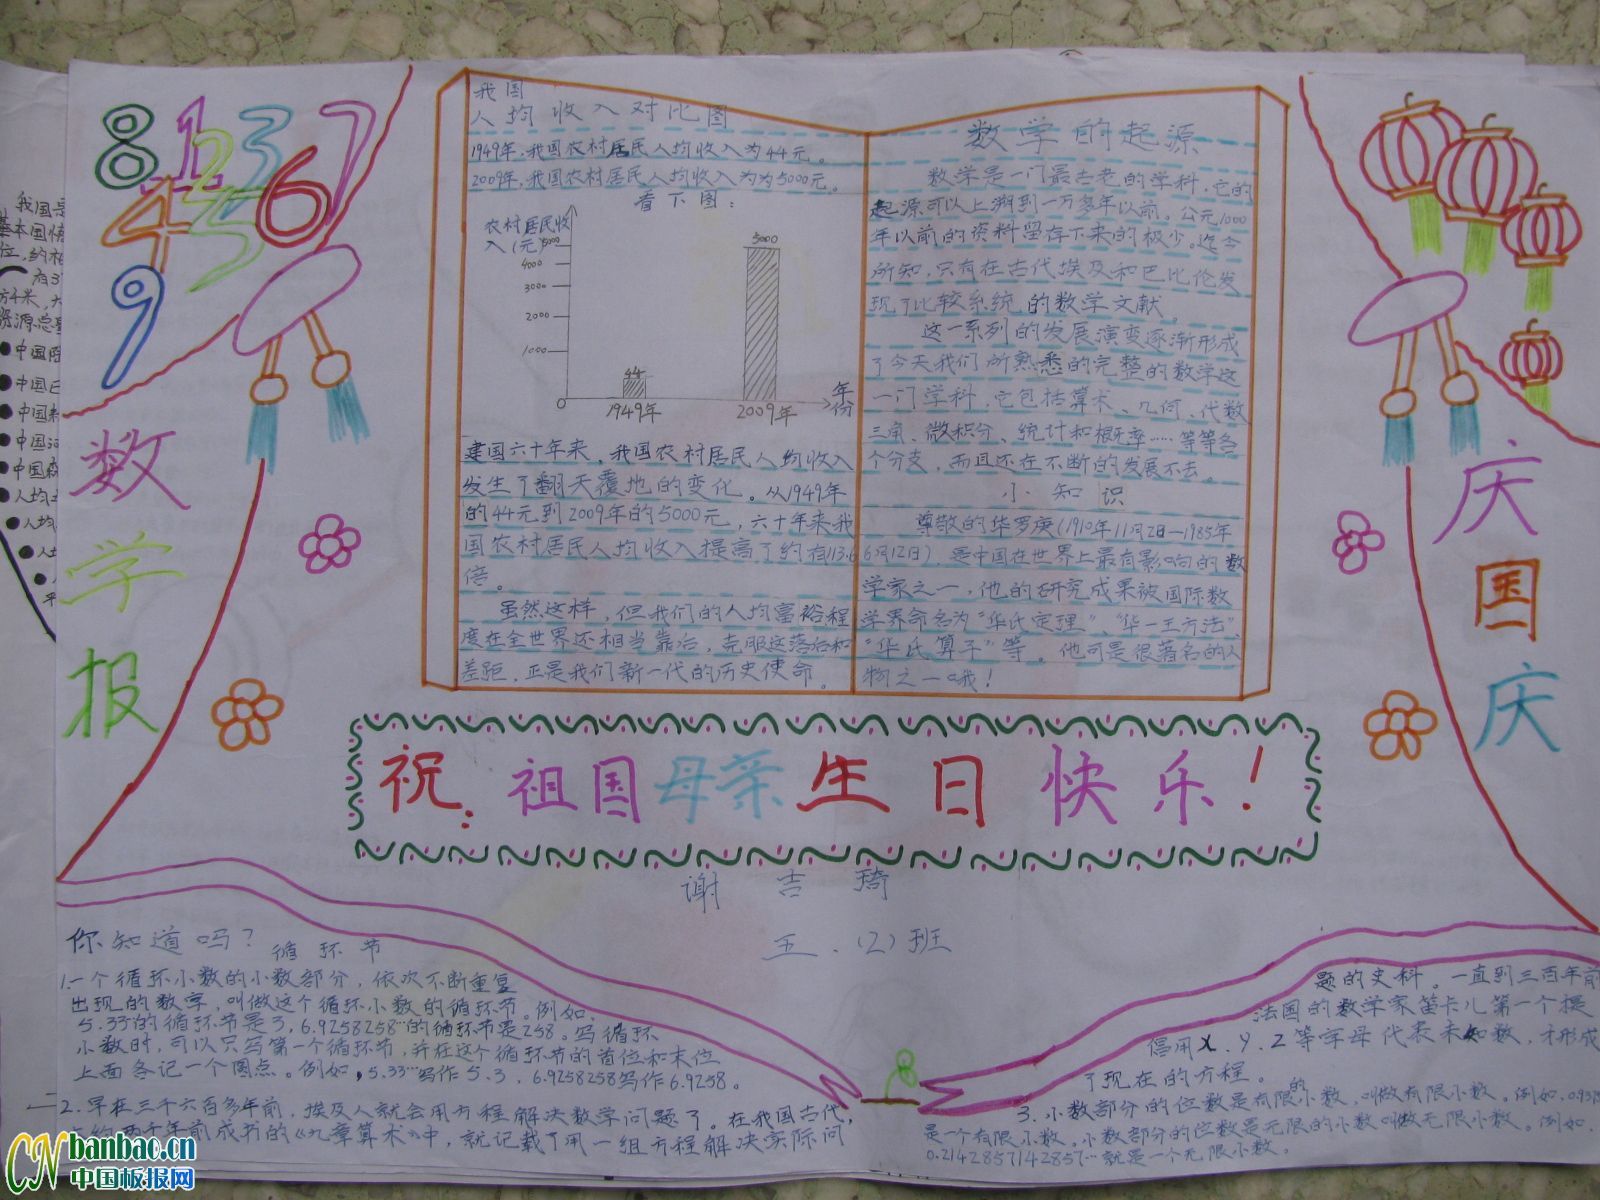 数
学
报
我国
人均收入对比图
1949年,我国农村居民人均收入为44元。
2009年,我国农村居民人均收入为为5000元。
看下图:
农村居民收
入(元)
5000
4000
3000
2000
1000
0
44
5000
1949年
2009年
年
份
建国六十年来,我国农村居民人均收入
发生了翻天覆地的变化。从1949年
的44元到2009年的5000元,六十年来我
国农村居民人均收入提高了约有113.6
倍。
虽然这样,但我们的人均富裕程
度在全世界还相当靠后,克服这落后和
差距,正是我们新一代的历史使命。
数学的起源
数学是一门最古老的学科,它的
起源可以上溯到一万多年以前。公元1000
年以前的资料留存下来的极少。迄今
所知,只有在古代埃及和巴比伦发
现了比较系统的数学文献。
这一系列的发展演变逐渐形成
了今天我们所熟悉的完整的数学这
一门学科,它包括算术、几何、代数
三角、微积分、统计和概率……等等各
个分支,而且还在不断的发展下去。
小知识
尊敬的华罗庚(1910年11月12日—1985年
6月12日),是中国在世界上最有影响的数
学家之一,他的研究成果被国际数
学界命名为“华氏定理”、“华—王方法”、
“华氏算子”等。他可是很著名的人
物之一哦!
庆
国
庆
祝:祖国母亲生日快乐!
谢吉琦
五.(2)班
你知道吗?
循环节
1.一个循环小数的小数部分,依次不断重复
出现的数字,叫做这个循环小数的循环节。例如、
5.33…的循环节是3,6.9258258…的循环节是258。写循环
小数时,可以只写第一个循环节,并在这个循环节的首位和末位
上面各记一个圆点。例如,5.33…写作5.3,6.9258258写作6.9258。
2.早在三千六百多年前,埃及人就会用方程解决数学问题了。在我国古代,
大约两千年前成书的《九章算术》中,就记载了用一组方程解决实际问
题的史料。一直到三百年前
法国的数学家笛卡儿第一个提
倡用x、y、z等字母代表未知数,才形成
了现在的方程。
3.小数部分的位数是有限的小数,叫做有限小数。例如,0.9375
是一个有限小数。小数部分的位数是无限的小数叫做无限小数。例如、
0.2142857142857…就是一个无限小数。
CN banbao.cn
中国板报网